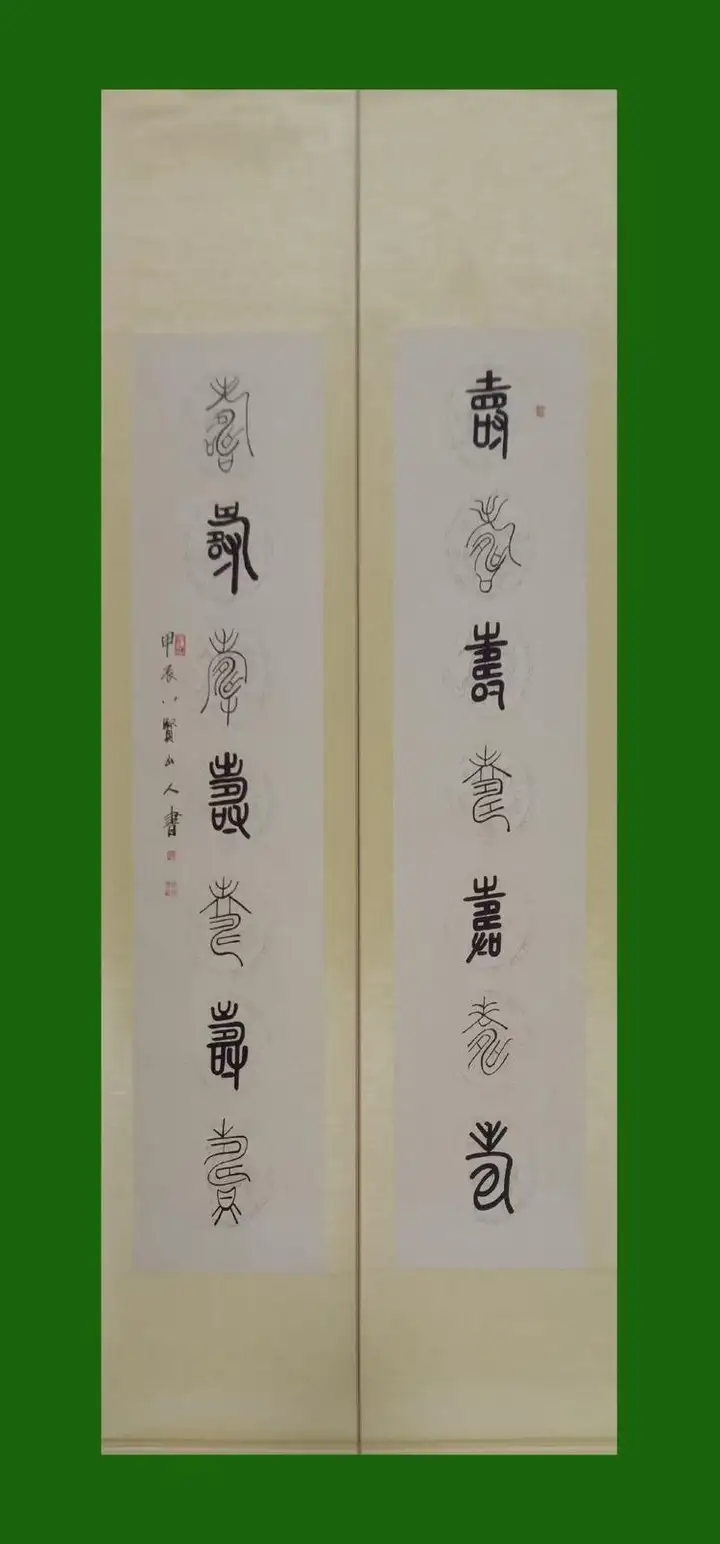 壽壽壽壽壽壽壽
壽壽壽壽壽壽壽
甲辰八賢山人書